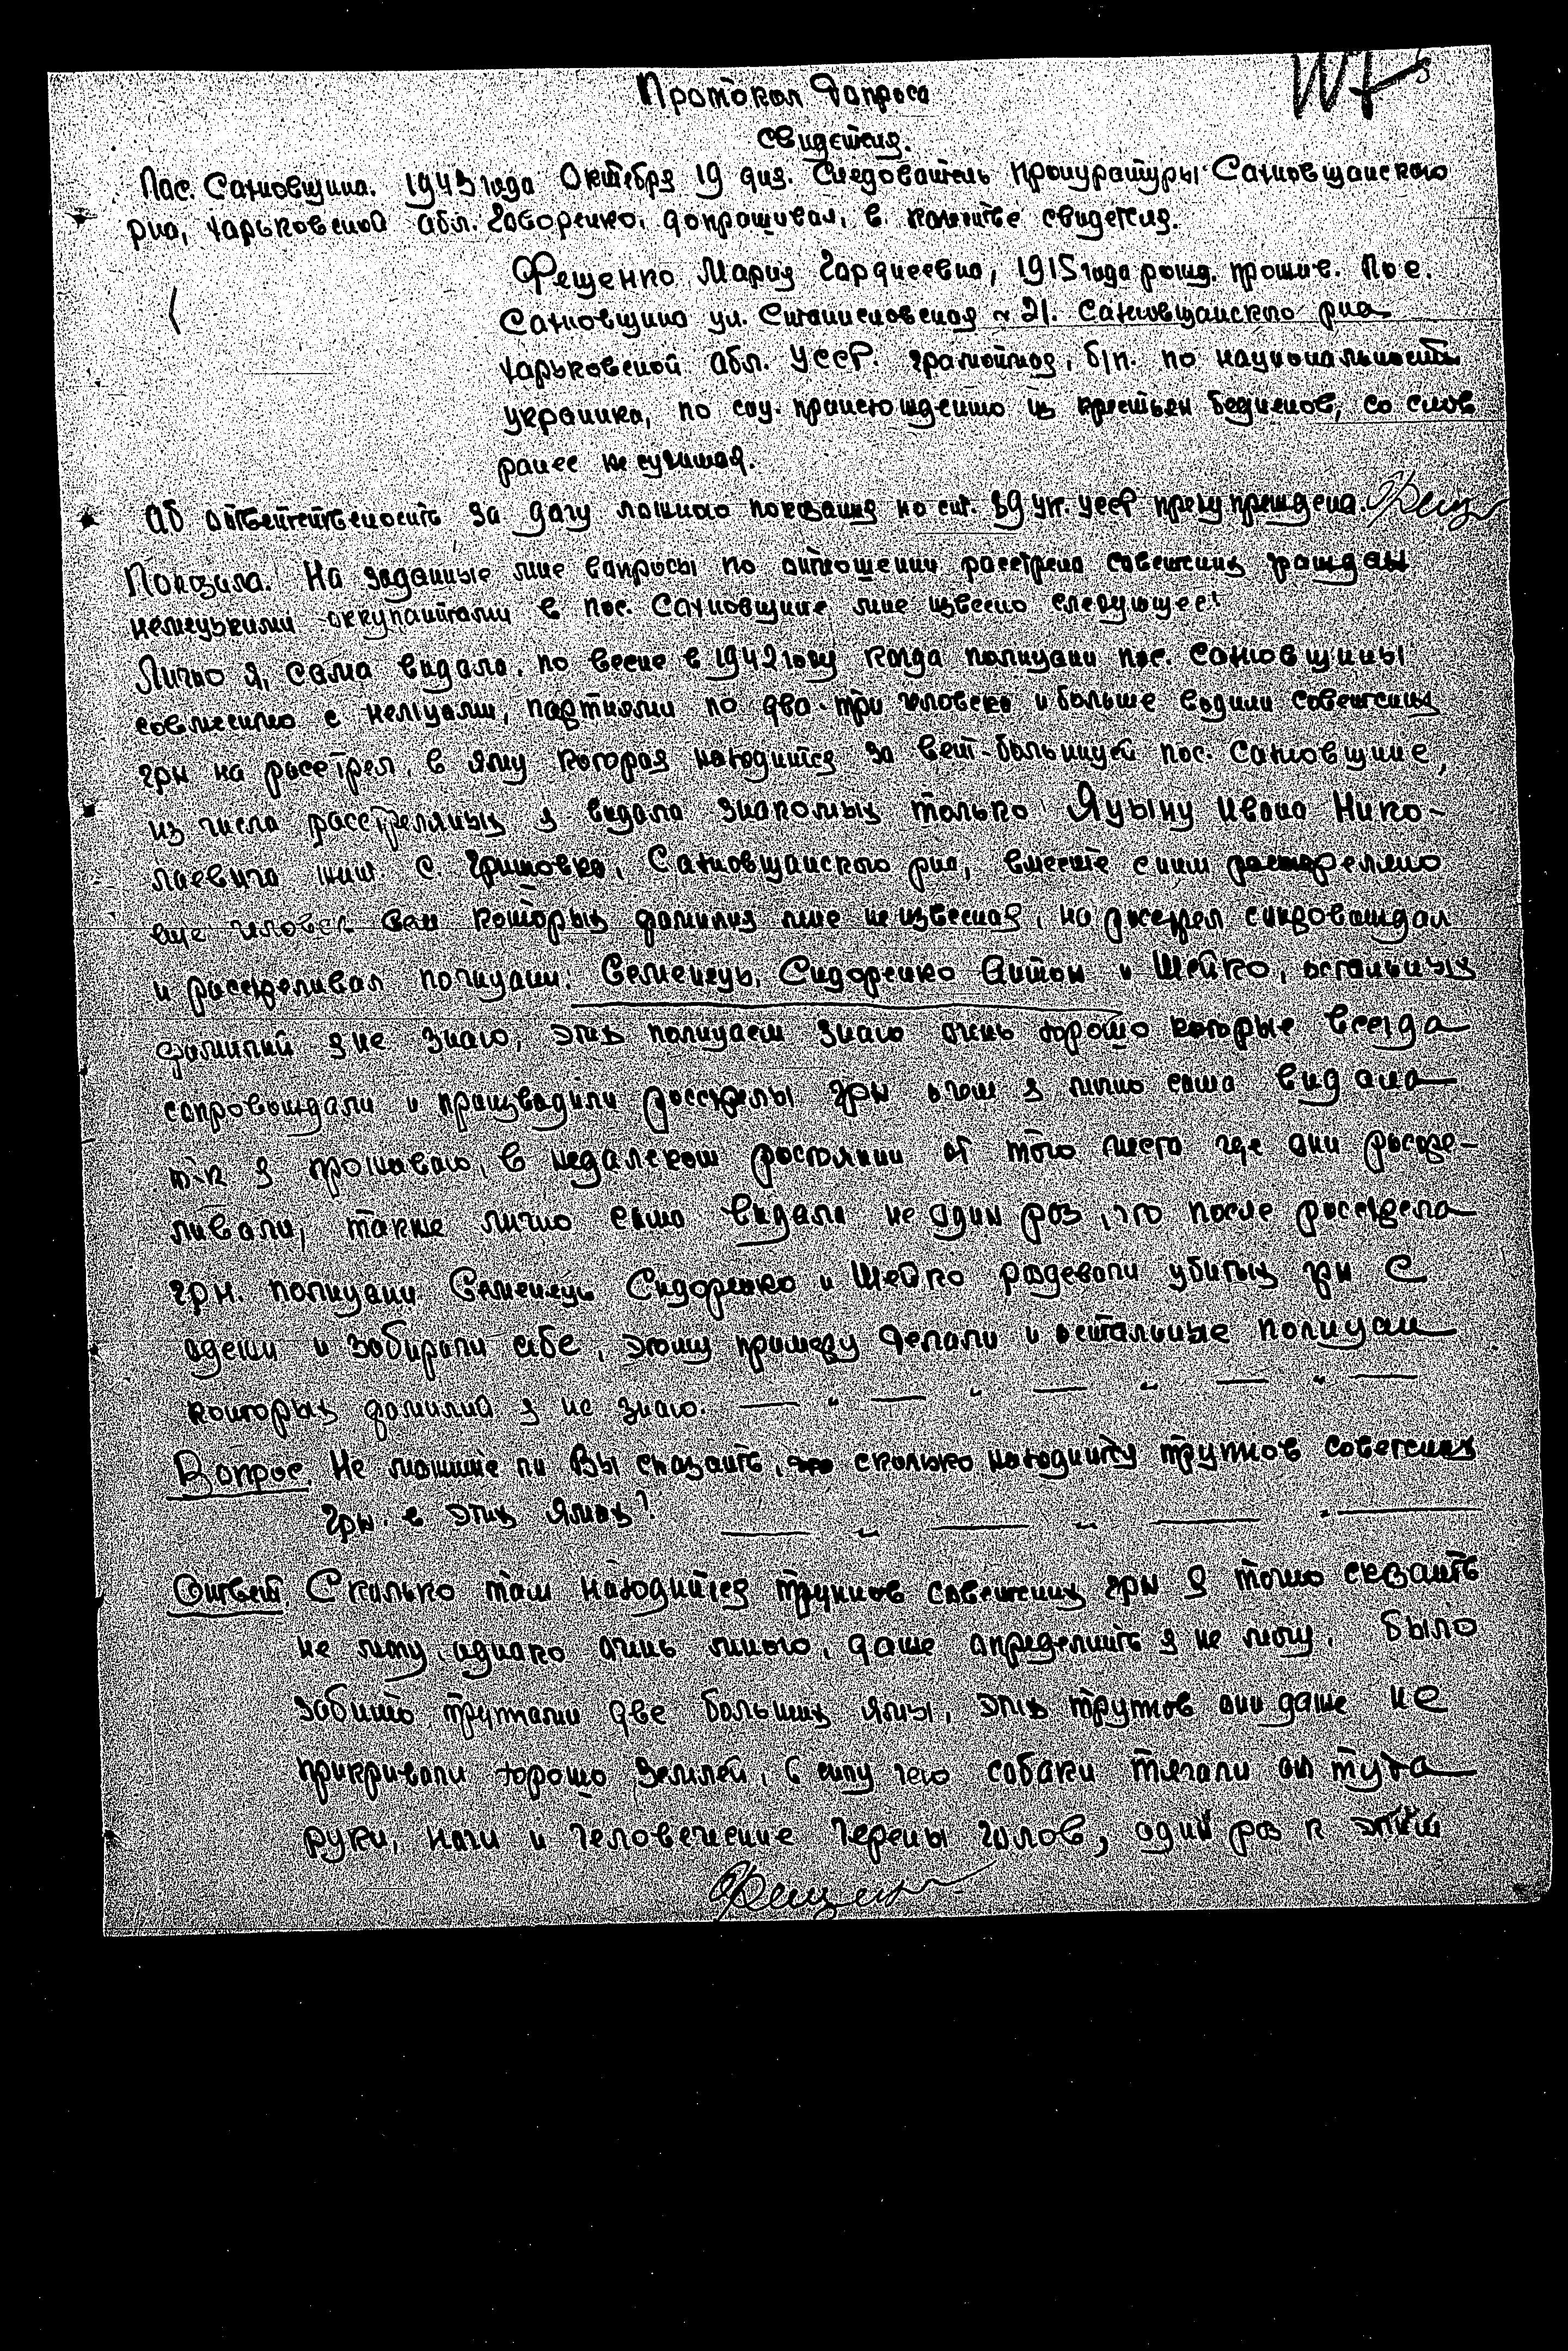 Протокол Допроса
свидетеля.
Пос. Сахновщина. 1943 года Октября 19 дня. Следователь прокуратуры Сахновщанского
рна, Харьковской обл. Говоренко, допрашивал, в качестве свидетеля.
Фещенко Мария Гордиеевна, 1915 года рожд. прожив. пос.
Сахновщина ул. № 21. Сахновщанского рна
Харьковской обл. УССР. грамотная, б/п. по национальности
украинка, по соц. происхождению из крестьян бедняков, со слов
ранее не судимая.
Об ответственности за дачу ложного показания по ст. 89 ук. УССР предупреждена. Фещ
Показала. На заданные мне вапросы по отношении расстрела советских граждан
немецькими оккупантами в пос. Сахновщине мне извесно следующее:
Лично я, сама видала, по весне в 1942 году когда полицаи пос. Сахновщины
совмесно с немцами, партиями по два-три человека и больше водили советских
грн на расстрел, в яму которая находится за вет-больницей пос. Сахновщине,
из числа расстрелянных я видала знакомых только Яцыну Ивана Нико-
лаевича жит. с. Гришовка, Сахновщанского рна, вместе с ним растрелено
еще человек которых фамилия мне не извесная, на росстрел сопровождал
и расстреливал полицаи: Семенець, Сидоренко Антон и Шейко, остальных
фамилий я не знаю, этих полицаем знаю очень хорошо которые всегда
сопровождали и производили росстрелы грн о чом я лично сама видала
т-к я проживаю, в недалеком ростоянии от того места где они росстре-
ливали, также лично сама видала не один роз, что после росстрела
грн. полицаи Семенець Сидоренко и Шейко роздевали убитых грн с
одежи и забирали себе, этому примеру делали и остальные полицаи
которых фамилий я не знаю. — " — " — " — " —
Вопрос. Не можите ли Вы сказать, сколько находится трупов советских
грн. в этих ямах? — " — " — " —
Ответ. Сколько там находится трупов советских грн я точно сказать
не могу, однако очинь много, даже определить я не могу. было
забито трупами две больших ямы, этих трупов они даже не
прикривали хорошо землей, в силу чего собаки тягали от туда
руки, ноги и человечение черепы голов, один роз к этим
Фещенко